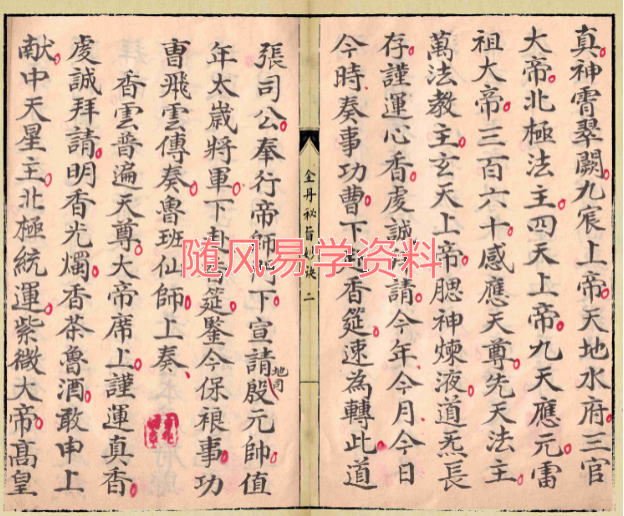 真神霄翠闕九宸上帝天地水府三官
大帝北極法主四天上帝九天應元雷
祖大帝三百六十感應天尊先天法主
萬法教主玄天上帝腮神煉液道炁長
存謹運心香虔誠請今年今月今日
今時奏事功曹下香筵速為轉此道
金丹秘旨 二
張司公奉行帝師下宣請地司殷元帥值
年太歲將軍下香筵鑒今保禄事功
曹飛雲傳奏魯班仙師上奏
香雲普遍天尊大帝席上謹運真香
虔誠拜請明香光燭香茶魯酒敢申上
献中天星主北極統運紫微大帝高皇
随风易学资料